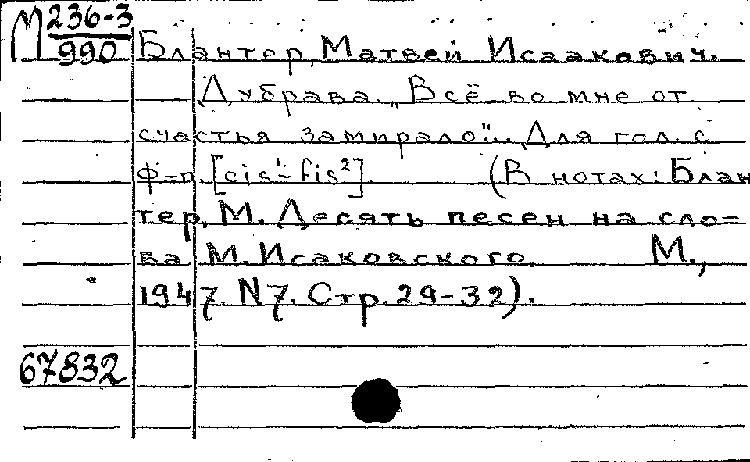 М 236-3
990
Блантер, Матвей Исаакович.
Дубрава. „Всё во мне от
счастья замирало". Для гол. с
ф-п. [cis¹-fis²]. (В нотах: Блан
тер, М. Десять песен на сло=
ва М. Исаковского. М.,
1947. N7. Стр. 29-32).
67832